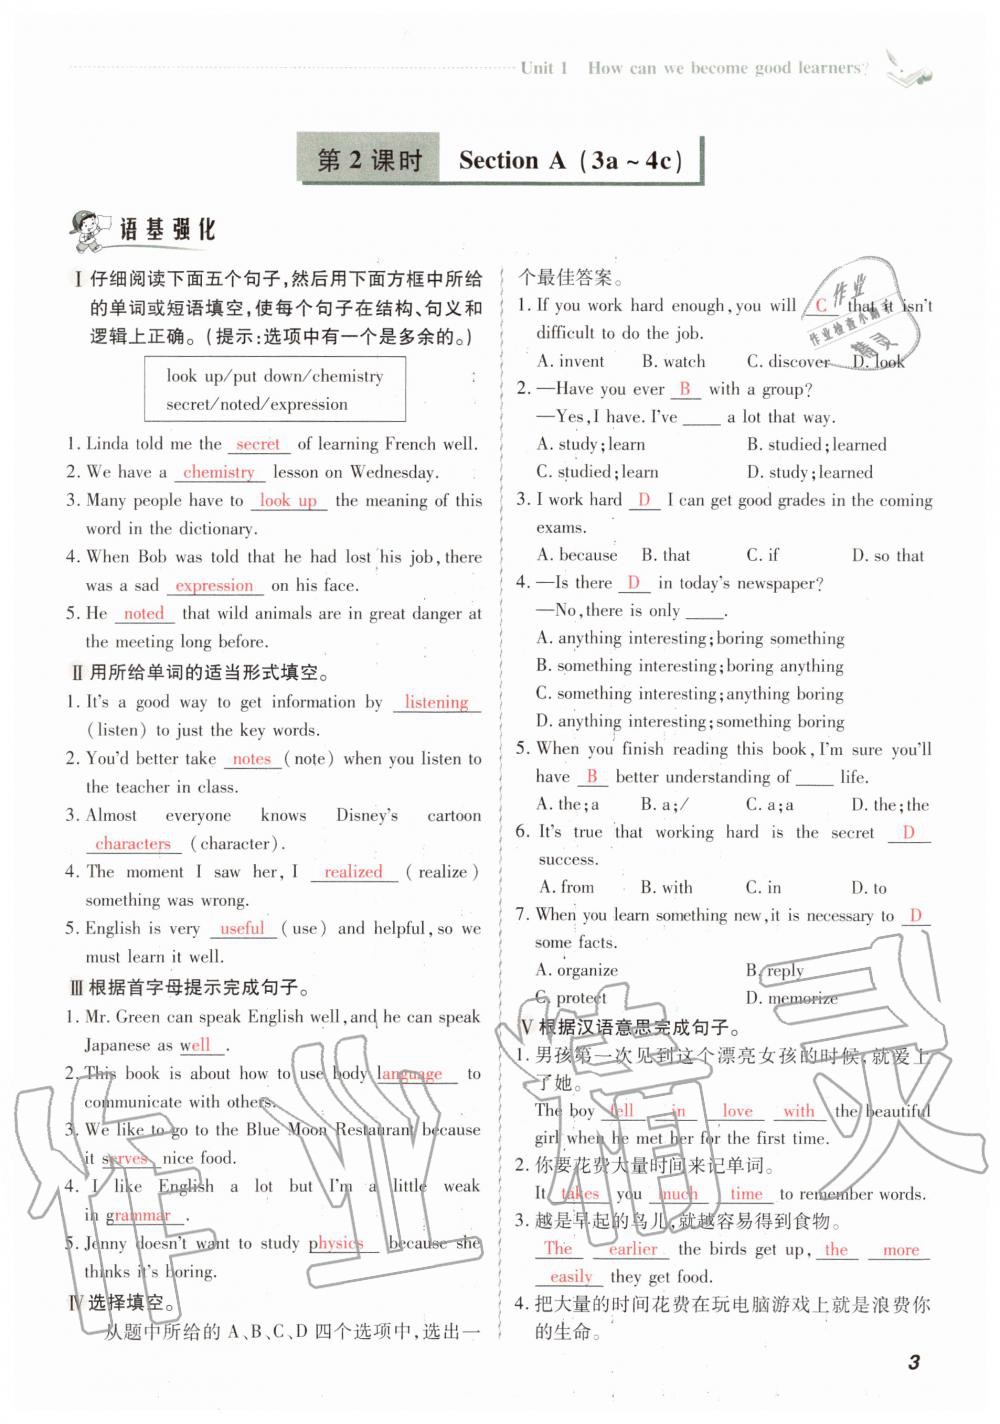 Unit 1 How can we become good learners?
第 2 课时 Section A (3a ~ 4c)
语基强化
Ⅰ 仔细阅读下面五个句子,然后用下面方框中所给
的单词或短语填空,使每个句子在结构、句义和
逻辑上正确。(提示:选项中有一个是多余的。)
look up/put down/chemistry
secret/noted/expression
1. Linda told me the secret of learning French well.
2. We have a chemistry lesson on Wednesday.
3. Many people have to look up the meaning of this
word in the dictionary.
4. When Bob was told that he had lost his job, there
was a sad expression on his face.
5. He noted that wild animals are in great danger at
the meeting long before.
Ⅱ 用所给单词的适当形式填空。
1. It's a good way to get information by listening
(listen) to just the key words.
2. You'd better take notes (note) when you listen to
the teacher in class.
3. Almost everyone knows Disney's cartoon
characters (character).
4. The moment I saw her, I realized (realize)
something was wrong.
5. English is very useful (use) and helpful, so we
must learn it well.
Ⅲ 根据首字母提示完成句子。
1. Mr. Green can speak English well, and he can speak
Japanese as well .
2. This book is about how to use body language to
communicate with others.
3. We like to go to the Blue Moon Restaurant because
it serves nice food.
4. I like English a lot but I'm a little weak
in grammar .
5. Jenny doesn't want to study physics because she
thinks it's boring.
Ⅳ 选择填空。
从题中所给的 A、B、C、D 四个选项中,选出一
个最佳答案。
1. If you work hard enough, you will C that it isn't
difficult to do the job.
A. invent B. watch C. discover D. look
2. —Have you ever B with a group?
—Yes, I have. I've ____ a lot that way.
A. study; learn B. studied; learned
C. studied; learn D. study; learned
3. I work hard D I can get good grades in the coming
exams.
A. because B. that C. if D. so that
4. —Is there D in today's newspaper?
—No, there is only ____.
A. anything interesting; boring something
B. something interesting; boring anything
C. something interesting; anything boring
D. anything interesting; something boring
5. When you finish reading this book, I'm sure you'll
have B better understanding of ____ life.
A. the; a B. a; / C. a; a D. the; the
6. It's true that working hard is the secret D
success.
A. from B. with C. in D. to
7. When you learn something new, it is necessary to D
some facts.
A. organize B. reply
C. protect D. memorize
Ⅴ 根据汉语意思完成句子。
1. 男孩第一次见到这个漂亮女孩的时候,就爱上
了她。
The boy fell in love with the beautiful
girl when he met her for the first time.
2. 你要花费大量时间来记单词。
It takes you much time to remember words.
3. 越是早起的鸟儿,就越容易得到食物。
The earlier the birds get up, the more
easily they get food.
4. 把大量的时间花费在玩电脑游戏上就是浪费你
的生命。
3
作业
作业检查小助手
精灵
作业精灵